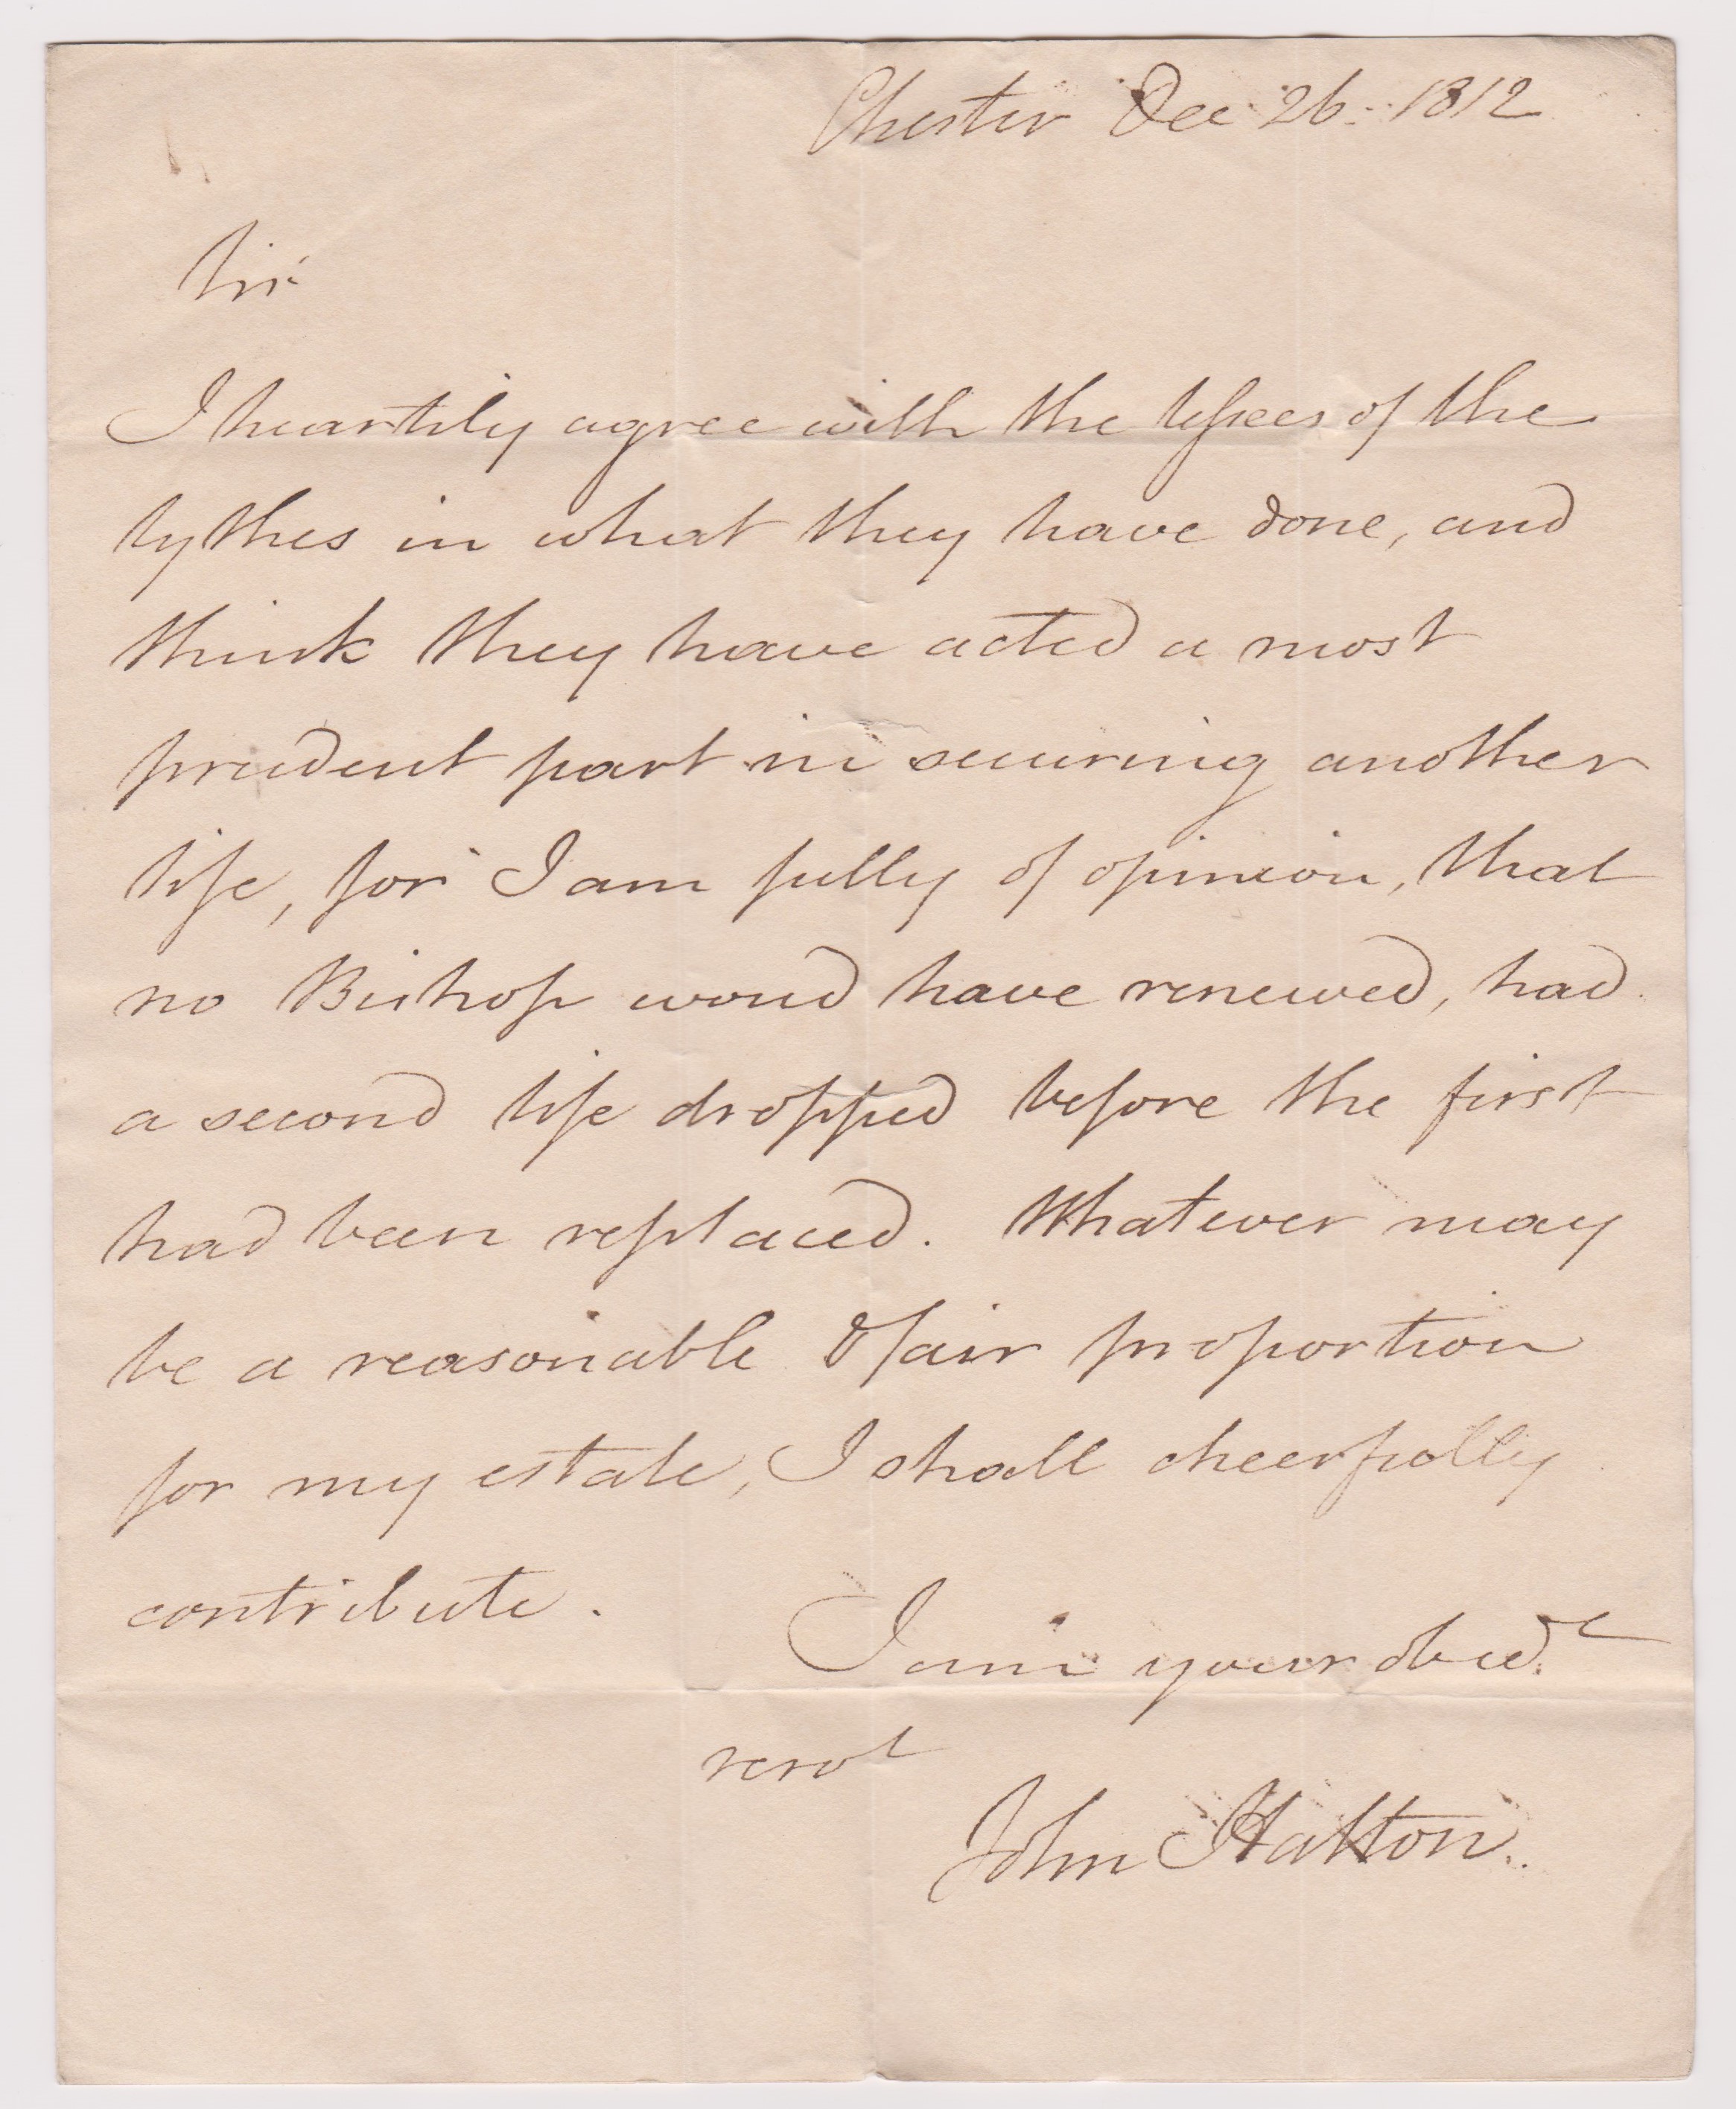 Chester Dec 26. 1812
Sir
I heartily agree with the lessees of the
tythes in what they have done, and
think they have acted a most
prudent part in securing another
life, for I am fully of opinion, that
no Bishop woud have renewed, had
a second life dropped before the first
had been replaced. Whatever may
be a reasonable & fair proportion
for my estate, I shall cheerfully
contribute.
I am your obedt
servt
John Hatton.